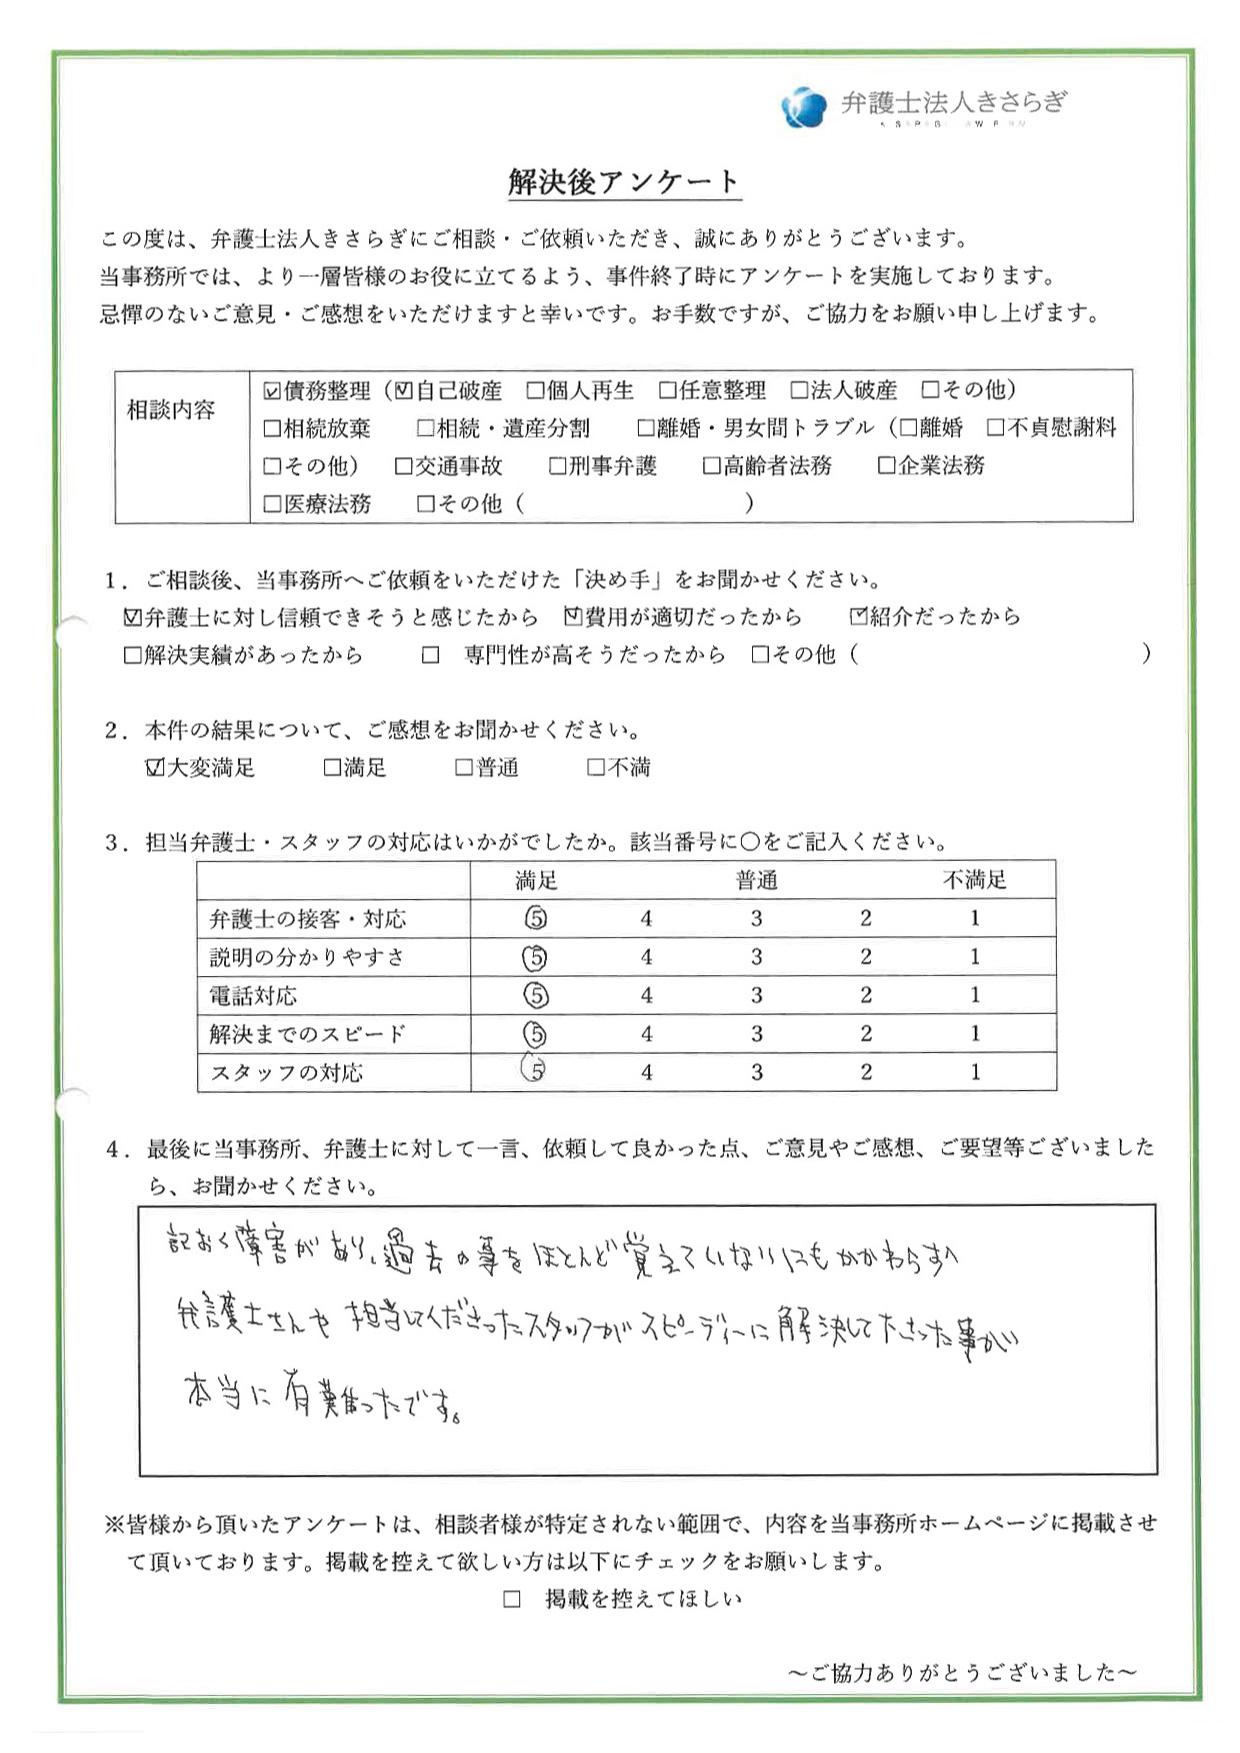 弁護士法人きさらぎ
解決後アンケート
この度は、弁護士法人きさらぎにご相談・ご依頼いただき、誠にありがとうございます。
当事務所では、より一層皆様のお役に立てるよう、事件終了時にアンケートを実施しております。
忌憚のないご意見・ご感想をいただけますと幸いです。お手数ですが、ご協力をお願い申し上げます。
相談内容
☑債務整理（☑自己破産 □個人再生 □任意整理 □法人破産 □その他）
□相続放棄 □相続・遺産分割 □離婚・男女間トラブル（□離婚 □不貞慰謝料
□その他） □交通事故 □刑事弁護 □高齢者法務 □企業法務
□医療法務 □その他（ ）
1．ご相談後、当事務所へご依頼をいただけた「決め手」をお聞かせください。
☑弁護士に対し信頼できそうと感じたから ☑費用が適切だったから ☑紹介だったから
□解決実績があったから □ 専門性が高そうだったから □その他（ ）
2．本件の結果について、ご感想をお聞かせください。
☑大変満足 □満足 □普通 □不満
3．担当弁護士・スタッフの対応はいかがでしたか。該当番号に〇をご記入ください。
満足 普通 不満足
弁護士の接客・対応 ⑤ 4 3 2 1
説明の分かりやすさ ⑤ 4 3 2 1
電話対応 ⑤ 4 3 2 1
解決までのスピード ⑤ 4 3 2 1
スタッフの対応 ⑤ 4 3 2 1
4．最後に当事務所、弁護士に対して一言、依頼して良かった点、ご意見やご感想、ご要望等ございました
ら、お聞かせください。
記おく障害があり、過去の事をほとんど覚えていないにもかかわらず
弁護士さんや担当してくださったスタッフがスピーディーに解決して下さった事が
本当に有難かったです。
※皆様から頂いたアンケートは、相談者様が特定されない範囲で、内容を当事務所ホームページに掲載させ
て頂いております。掲載を控えて欲しい方は以下にチェックをお願いします。
□ 掲載を控えてほしい
～ご協力ありがとうございました～